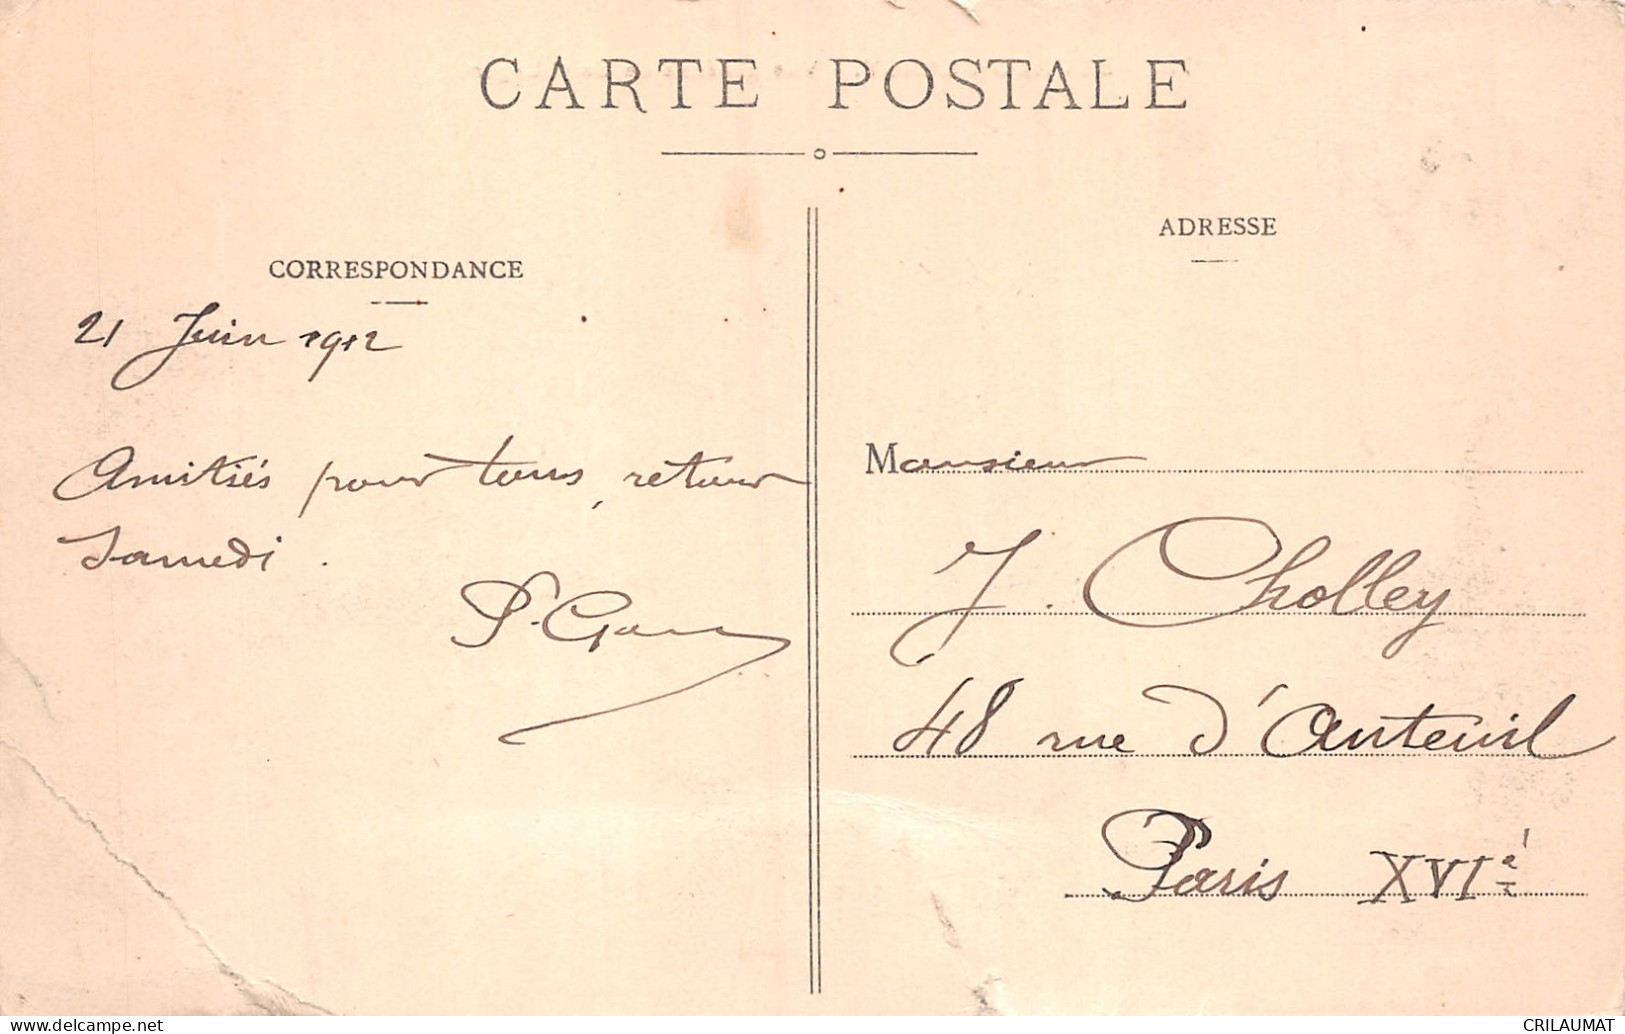 CARTE POSTALE
CORRESPONDANCE
21 Juin 1912
Amitiés pour tous, retour
Samedi.
ADRESSE
Monsieur
J. Cholley
48 rue d'Auteuil
Paris XVIè
CRILAUMAT